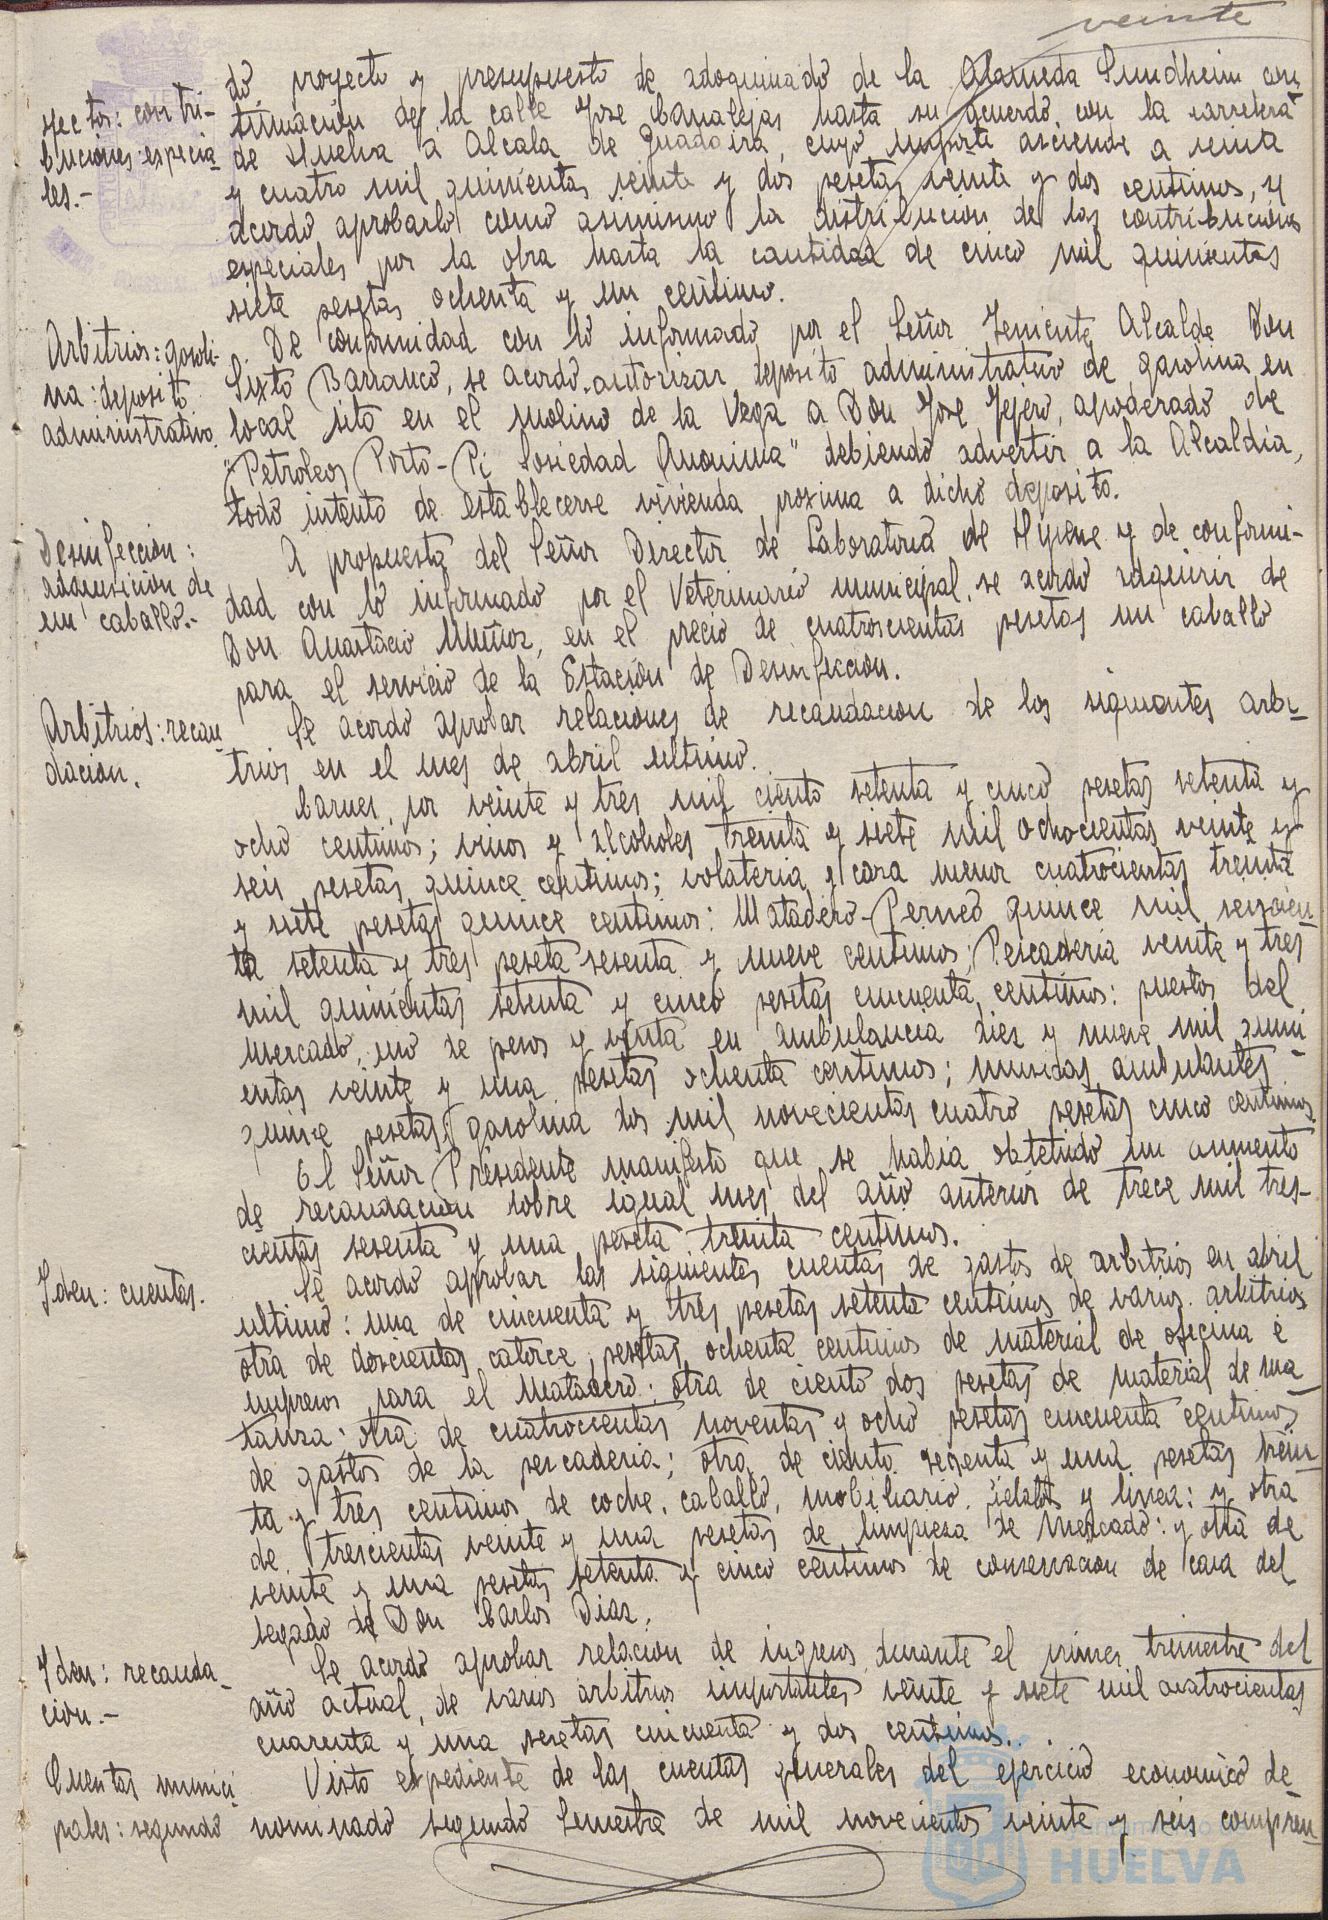 veinte
yectos: contri-
buciones especia-
les.-
do, proyecto y presupuesto de adoquinado de la Alameda Sundheim con
tinuación de la calle Jose Canalejas hasta su acuerdo con la carretera
de Huelva a Alcala de Guadaira, cuyo importe asciende a
y cuatro mil quinientas veinte y dos pesetas veinte y dos centimos, y
acordo aprobarlo como asimismo la distribucion de las contribuciones
especiales por la obra hasta la cantidad de cinco mil quinientas
siete pesetas ochenta y un centimo.
Arbitrios: gasoli-
na: deposito
administrativo.
De conformidad con lo informado por el Señor Teniente Alcalde Don
Sixto Barranco, se acordo autorizar deposito administrativo de gasolina en
local sito en el Molino de la Vega a Don Jose Tejero, apoderado de
"Petroleos Porto-Pi Sosiedad Anonima" debiendo advertir a la Alcaldia,
todo intento de establecerse vivienda proxima a dicho deposito.
Desinfeccion:
adquisicion de
un caballo.-
A propuesta del Señor Director de Laboratorio de Higiene y de conformi-
dad con lo informado por el Veterinario municipal, se acordo adquirir de
Don Anastacio Muñoz, en el precio de cuatroscientas pesetas un caballo
para el servicio de la Estación de Desinfeccion.
Arbitrios: recau
dacion.
Se acordo aprobar relaciones de recaudacion de los siguientes arbi-
trios en el mes de abril ultimo.
Carnes, por veinte y tres mil ciento setenta y cinco pesetas setenta y
ocho centimos; vinos y alcoholes treinta y siete mil ochocientas veinte y
seis pesetas quince centimos; volateria y caza menor cuatrocientas treinta
y siete pesetas quince centimos: Matadero-Perneo quince mil seiscien
ta setenta y tres peseta sesenta y nueve centimos; Pescaderia veinte y tres
mil quinientas setenta y cinco pesetas cincuenta centimos: puestos del
Mercado, uso de pesos y venta en ambulancia diez y nueve mil quini
entas veinte y una pesetas ochenta centimos; musicas ambulantes
quince pesetas; gasolina dos mil novecientas cuatro pesetas cinco centimos.
El Señor Presidente manifesto que se habia obtetudo un aumento
de recaudacion sobre igual mes del año anterior de trece mil tres-
cientas sesenta y una peseta treinta centimos.
Iden: cuentas.
Se acordo aprobar las siguientes cuentas de gastos de arbitrios en abril
ultimo: una de cincuenta y tres pesetas setenta centimos de varios arbitrios
otra de doscientas catorce pesetas ochenta centimos de material de oficina e
impresos para el Matadero; otra de ciento dos pesetas de material de ma
tanza; otra de cuatrocientas noventas y ocho pesetas cincuenta centimos
de gastos de la pescaderia; otra de ciento sesenta y una pesetas trein-
ta y tres centimos de coche, caballo, mobiliario, fielatos y linea: y otra
de trescientas veinte y una pesetas de limpieza de Mercado: y otra de
veinte y una pesetas setenta y cinco centimos de conservacion de casa del
legado de Don Carlos Diaz.
Iden: recauda
cion.-
Se acordo aprobar relacion de ingresos durante el primer trimestre del
año actual, de varios arbitrios importantes veinte y siete mil cuatrocientas
cuarenta y una pesetas cincuenta y dos centimos.
Cuentas munici
pales: segundo
Visto expediente de las cuentas generales del ejercicio economico de
nominado segundo Semestre de mil novecientos veinte y seis compren
Ayuntamiento de
HUELVA